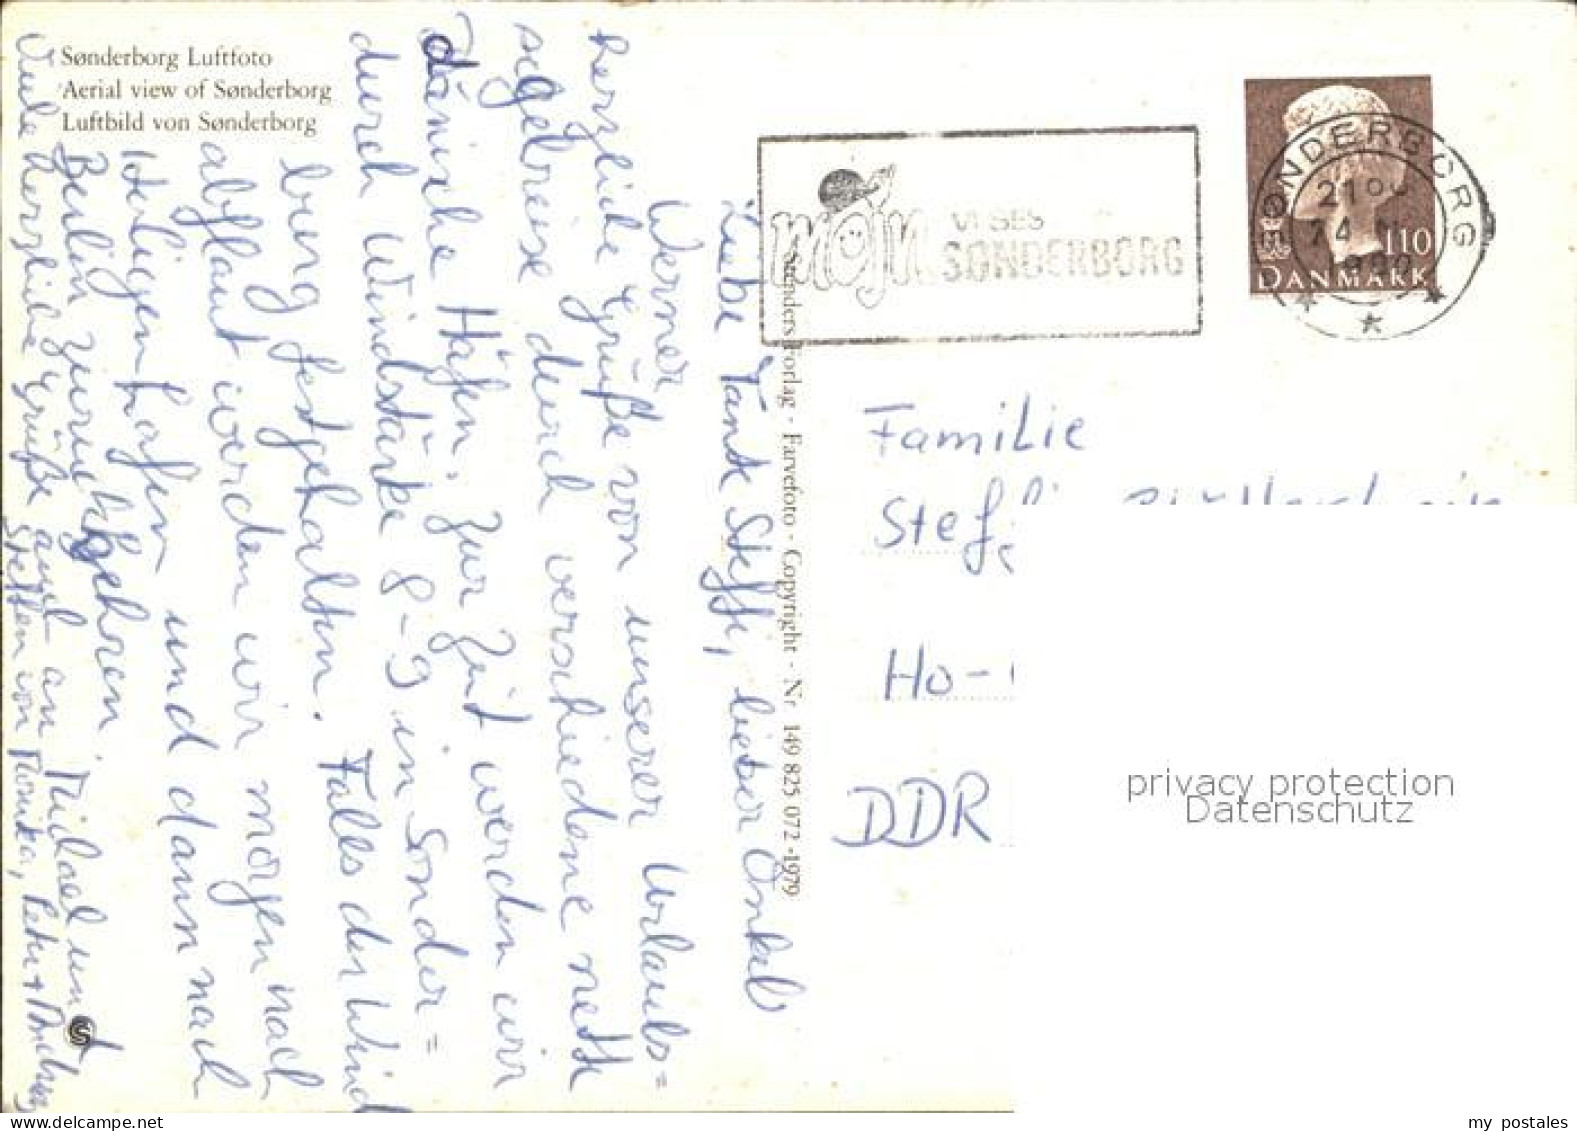 Sønderborg Luftfoto
Aerial view of Sønderborg
Luftbild von Sønderborg
Liebe Tante Steffi, lieber Onkel
Werner
herzliche Grüße von unserer Urlaubs=
segelreise durch verschiedene nette
dänische Häfen. Zur Zeit werden wir
durch Windstärke 8-9 in Sonder=
burg festgehalten. Falls der Wind
abflaut werden wir morgen nach
Heiligenhafen und dann nach
Berlin zurückkehren.
Viele herzliche Grüße auch an Michael und
Steffen von Monika, Peter + Andreas
Stenders Forlag - Farvefoto - Copyright - Nr. 149 825 072 -1979
mojn
VI SES
SØNDERBORG
SØNDERBORG
2100
110
DANMARK
Familie
Steffi
Ho-
DDR
privacy protection
Datenschutz
my postales